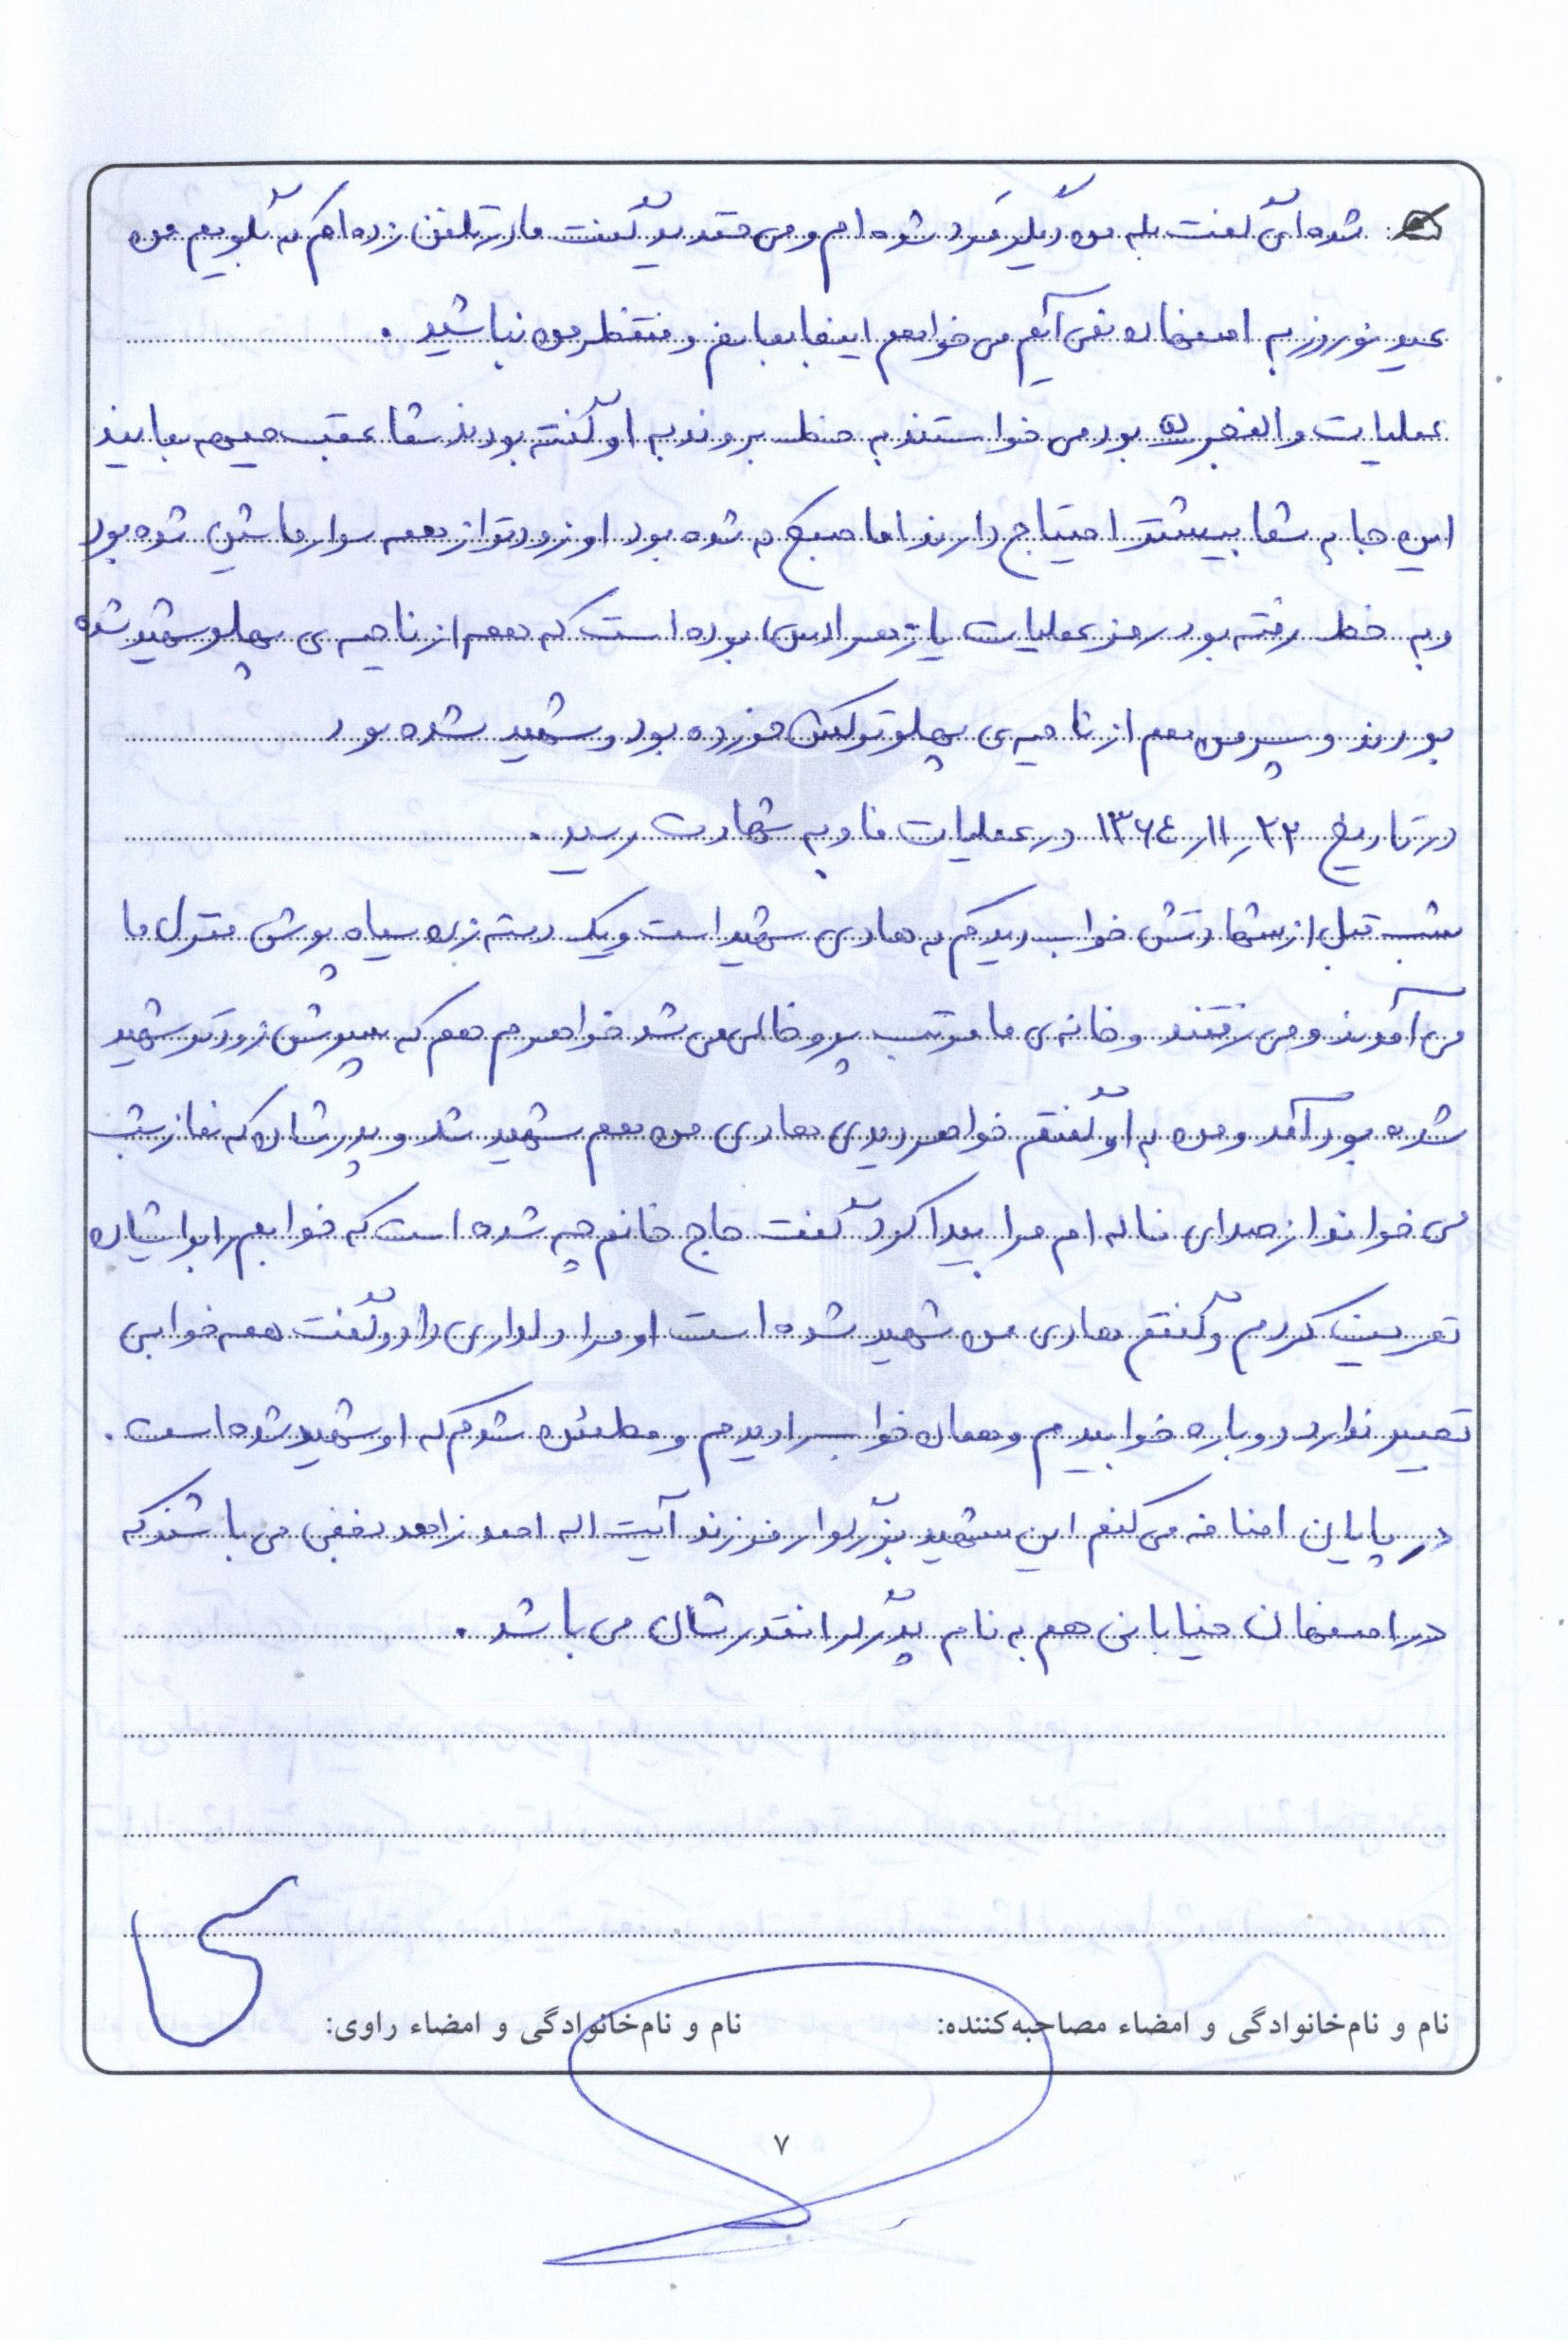 شده‌ای گفت بله من دیگر مرد شده ام و می خندید گفت مادر تلفن زده ام که بگویم من
عید نوروز به اصفهان نمی آیم می خواهم اینجا بمانم و منتظر من نباشید .
عملیات والفجر ۸ بود می خواستند به خط بروند به او گفته بودند شما عقب جبهه بمانید
این جا به شما بیشتر احتیاج دارند اما صبح که شده بود او زودتر از همه سوار ماشین شده بود
و به خط رفته بود رمز عملیات یا زهرا (س) بوده است که همه از ناحیه ی پهلو شهید شده
بودند و پسر من هم از ناحیه ی پهلو ترکش خورده بود و شهید شده بود
در تاریخ ۱۳۶۴/۱۱/۲۲ در عملیات فاو به شهادت رسید .
شب قبل از شهادتش خواب دیدم که هادی شهید است و یک دسته زن سیاه پوش منزل ما
می آمدند و می رفتند و خانه ی ما مرتب پر و خالی می شد خواهرم هم که پسرش زودتر شهید
شده بود آمد و من به او گفتم خواهر دیدی هادی من هم شهید شد و پدرشان که نماز شب
می خواند از صدای ناله ام مرا بیدار کرد گفت حاج خانم چه شده است که خوابم را برایشان
تعریف کردم و گفتم هادی من شهید شده است او مرا دلداری داد و گفت همه خوابی
تعبیر ندارد دوباره خوابیدم و همان خواب را دیدم و مطمئن شدم که او شهید شده است .
در پایان اضافه می کنم این شهید بزرگوار فرزند آیت اله احمد زاهد نجفی می باشند که
در اصفهان خیابانی هم به نام پدر گرانقدرشان می باشد .
نام و نام‌خانوادگی و امضاء مصاحبه‌کننده: نام و نام‌خانوادگی و امضاء راوی:
۷